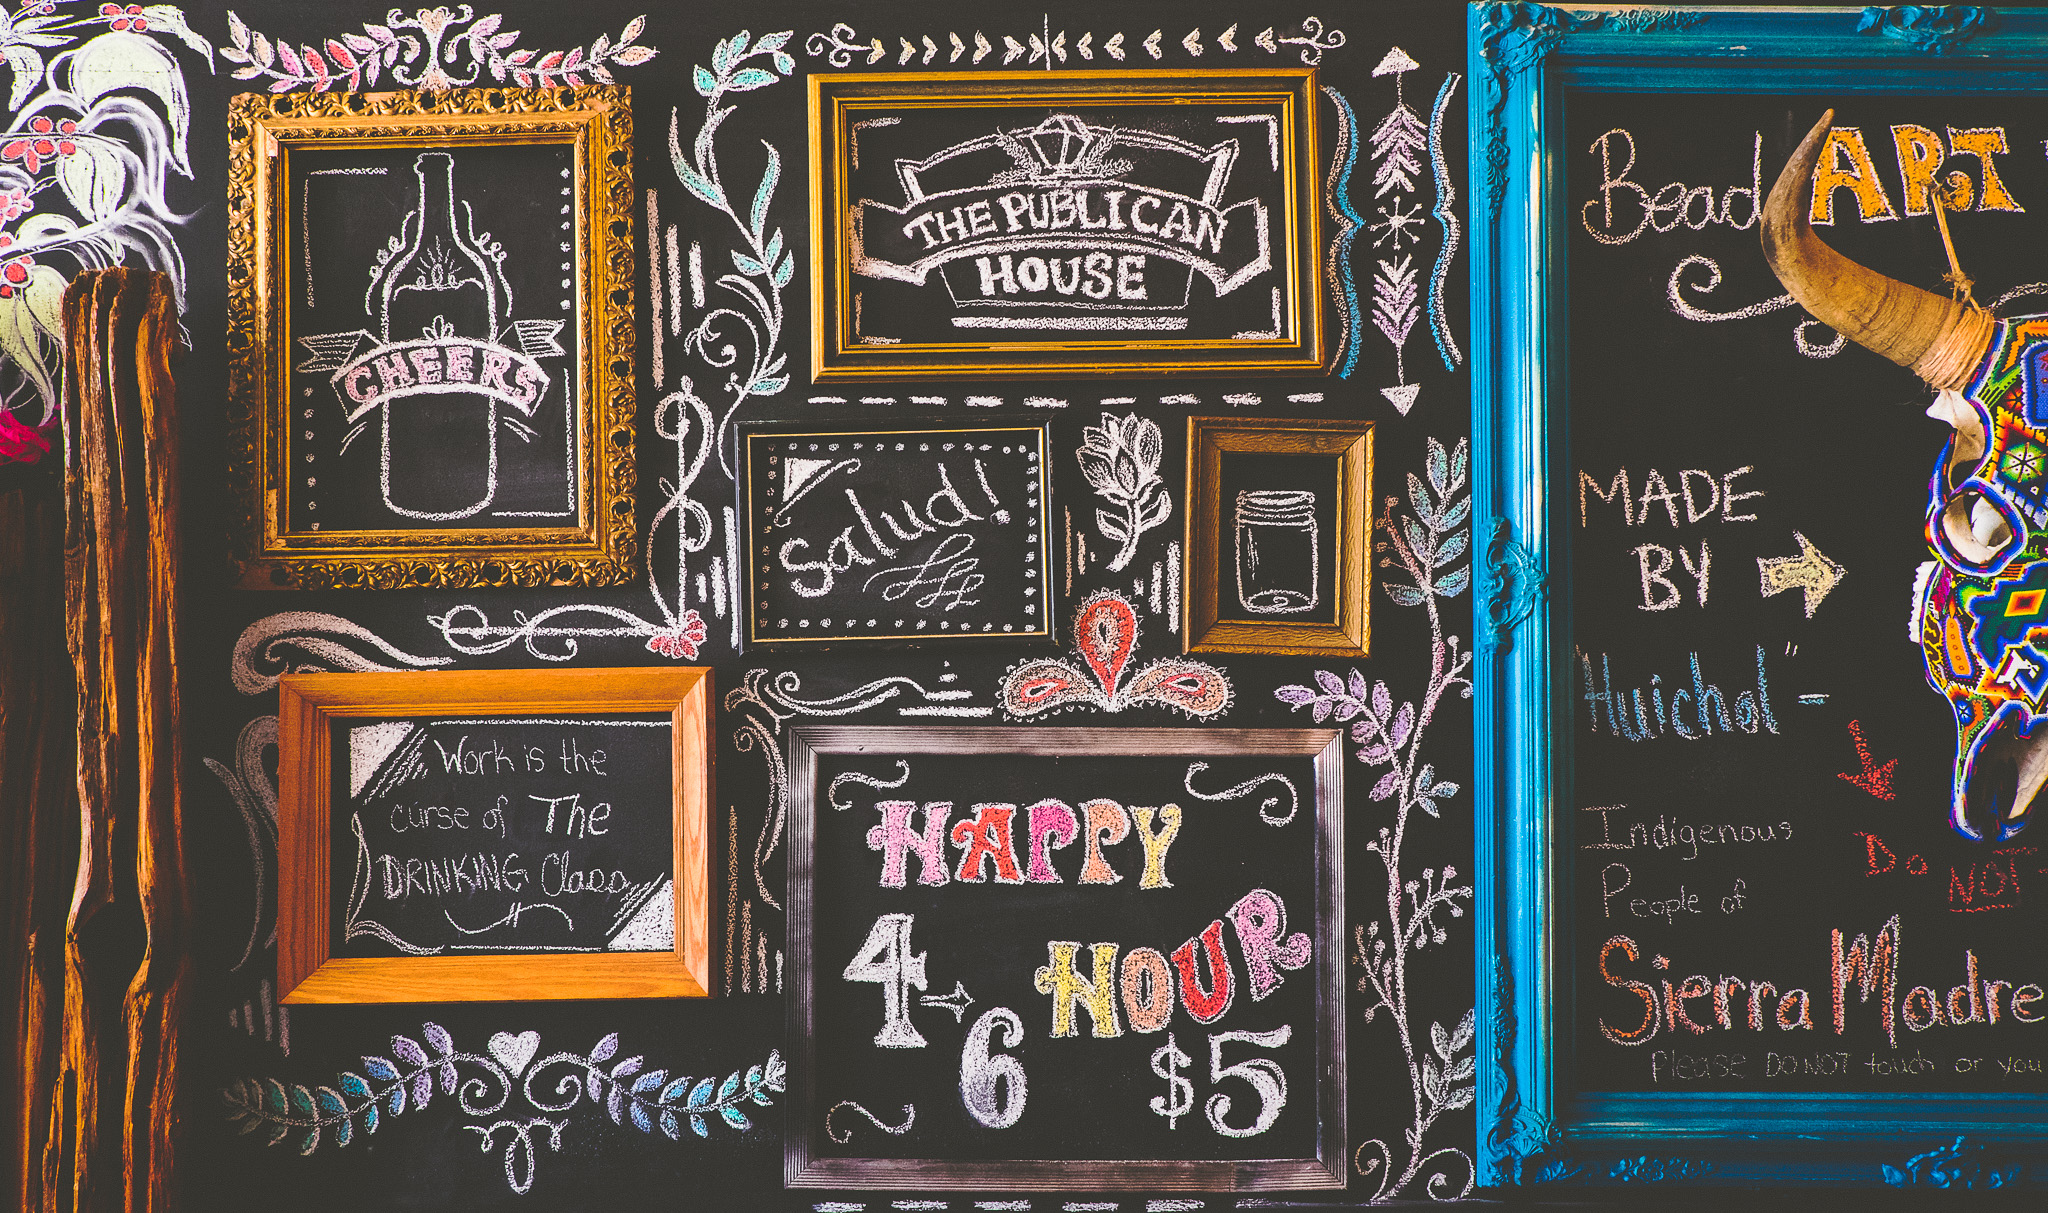 CHEERS
THE PUBLICAN
HOUSE
Salud!
Work is the
curse of The
DRINKING Class
HAPPY
HOUR
4→6
$5
Bead ART
MADE
BY →
"Huichol" -
Indigenous
People of
Sierra Madre
Do
NOT
Please DO NOT touch or you